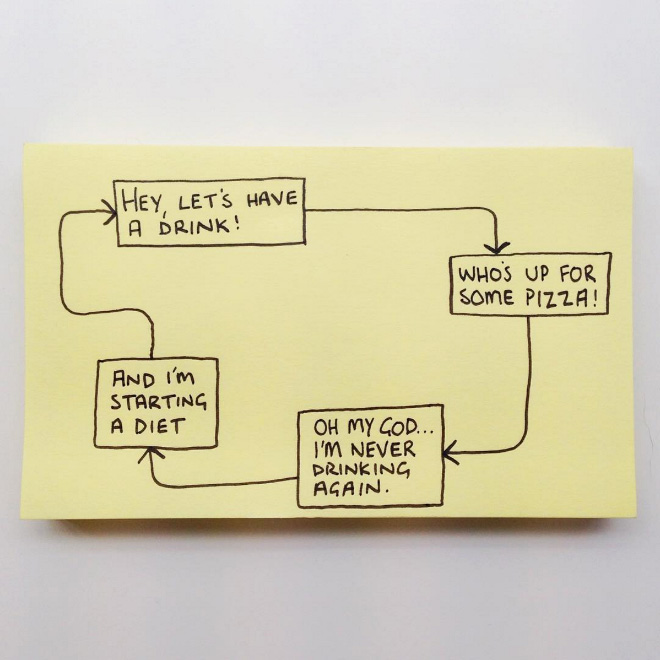 HEY, LET'S HAVE
A DRINK!
WHO'S UP FOR
SOME PIZZA!
OH MY GOD...
I'M NEVER
DRINKING
AGAIN.
AND I'M
STARTING
A DIET